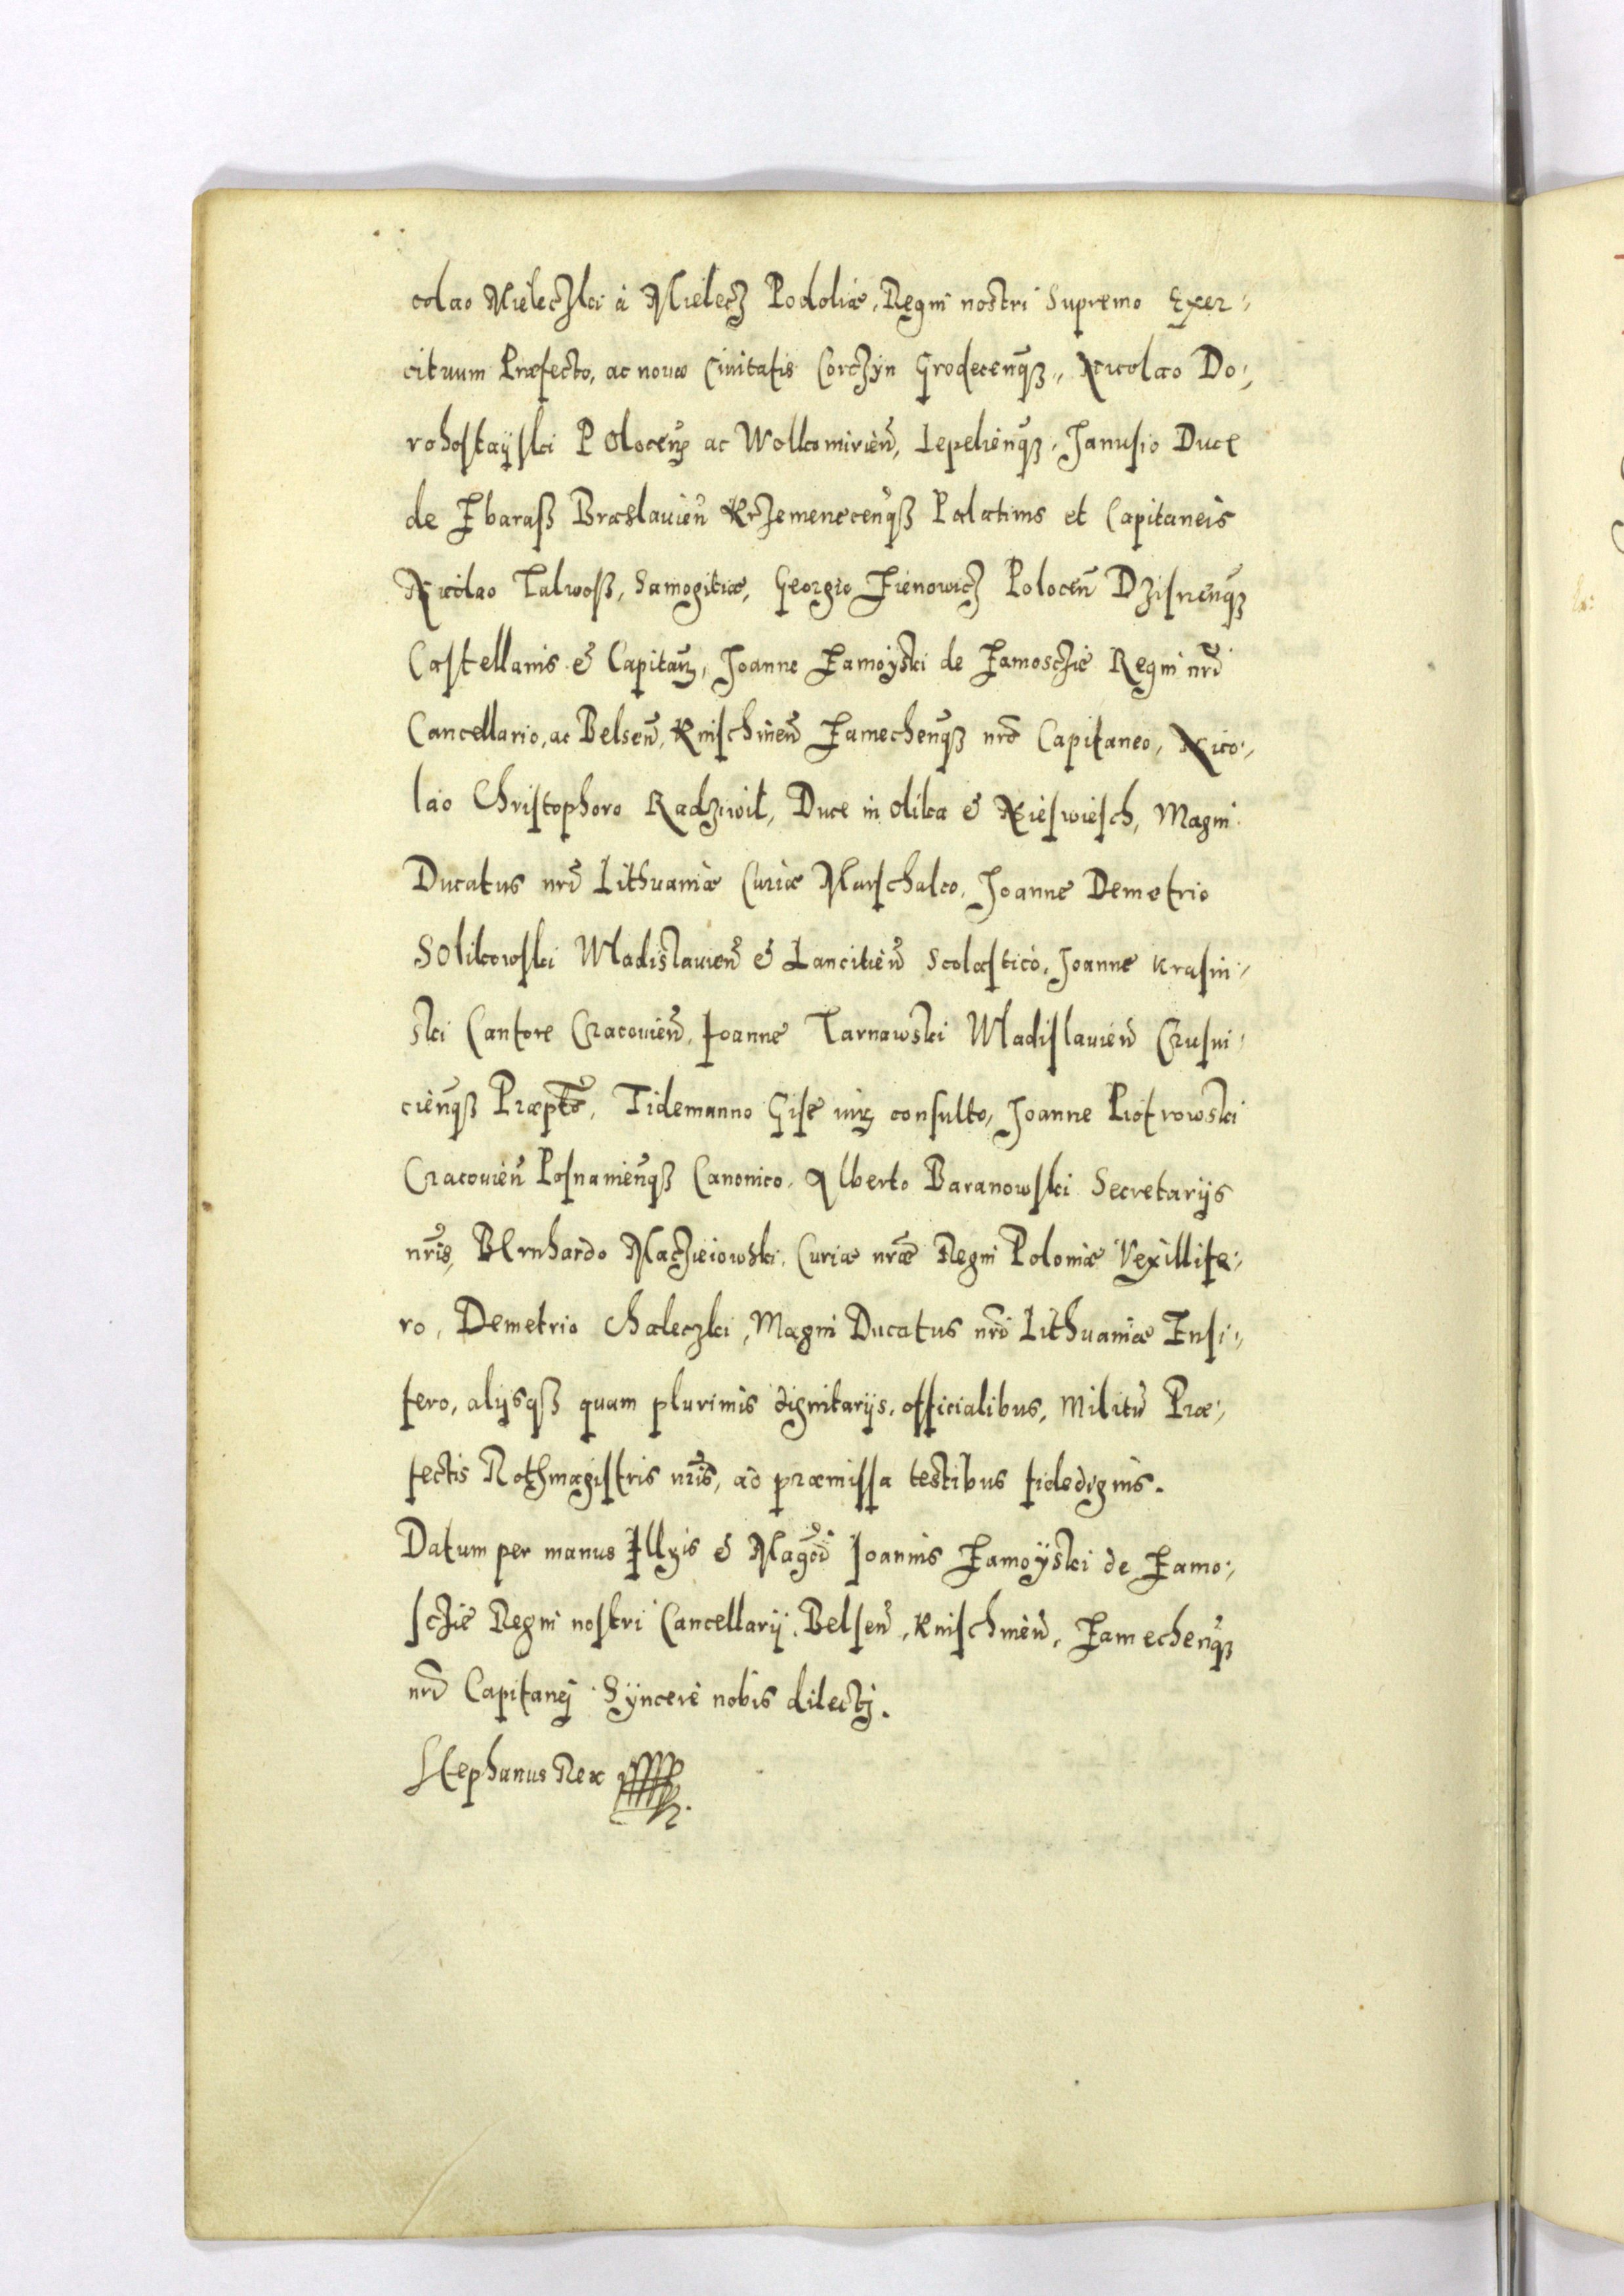 colao Mieleczki à Mielecz Podoliæ, Regni nostri Supremo Exer-
cituum Præfecto, ac nouæ Ciuitatis Corczÿn Grodecenq̃ꝫ, Nicolao Do-
rohostaÿski Polocen̄ ac Wolkomirien̄, Lepelienq̃ꝫ, Janusio Duce
de Zbaraß Braslauien̄ Krzemenecenq̃ꝫ Palatinis et Capitaneis
Nicolao Talwoß, Samogitiæ, Georgio Zienowicz Polocen̄ Dzisnenq̃ꝫ
Castellanis & Capitan̄, Joanne Zamoÿski de Zamosczie Regni nr̄i
Cancellario, ac Belsen̄, Knischinen̄ Zamechenq̃ꝫ nr̄o Capitaneo, Nico-
lao Christophoro Radziwil, Duce in Olika & Nieswiesch, Magni
Ducatus nr̄i Lithuaniæ Curiæ Marschalco, Joanne Demetrio
Solikowski Wladislauien̄ & Lancitien̄ Scolastico, Joanne Krasin-
ski Cantore Cracouien̄, Joanne Tarnawski Wladislauien̄ Crusui-
cienq̃ꝫ Præpt̄o, Tidemanno Gise iuꝝ consulto, Joanne Piotrowski
Cracouien̄ Posnanienq̃ꝫ Canonico, Alberto Baranowski Secretarijs
nr̄is, Bernhardo Maczieiowski, Curiæ nr̄æ Regni Poloniæ Vexillife-
ro, Demetrio Chaleczki, Magni Ducatus nr̄i Lithuaniæ Ensi-
fero, alijsqꝫ quam plurimis dignitarijs, officialibus, Militū Præ-
fectis Rothmagistris nr̄is, ad præmissa testibus fidedignis.
Datum per manus Illꝛis & Magc̄i Joannis Zamoÿski de Zamo-
sczie Regni nostri Cancellarij, Belsen̄, Knischinen̄, Zamechenq̃ꝫ
nr̄i Capitanej Sÿncere nobis dilectj.
Stephanus Rex